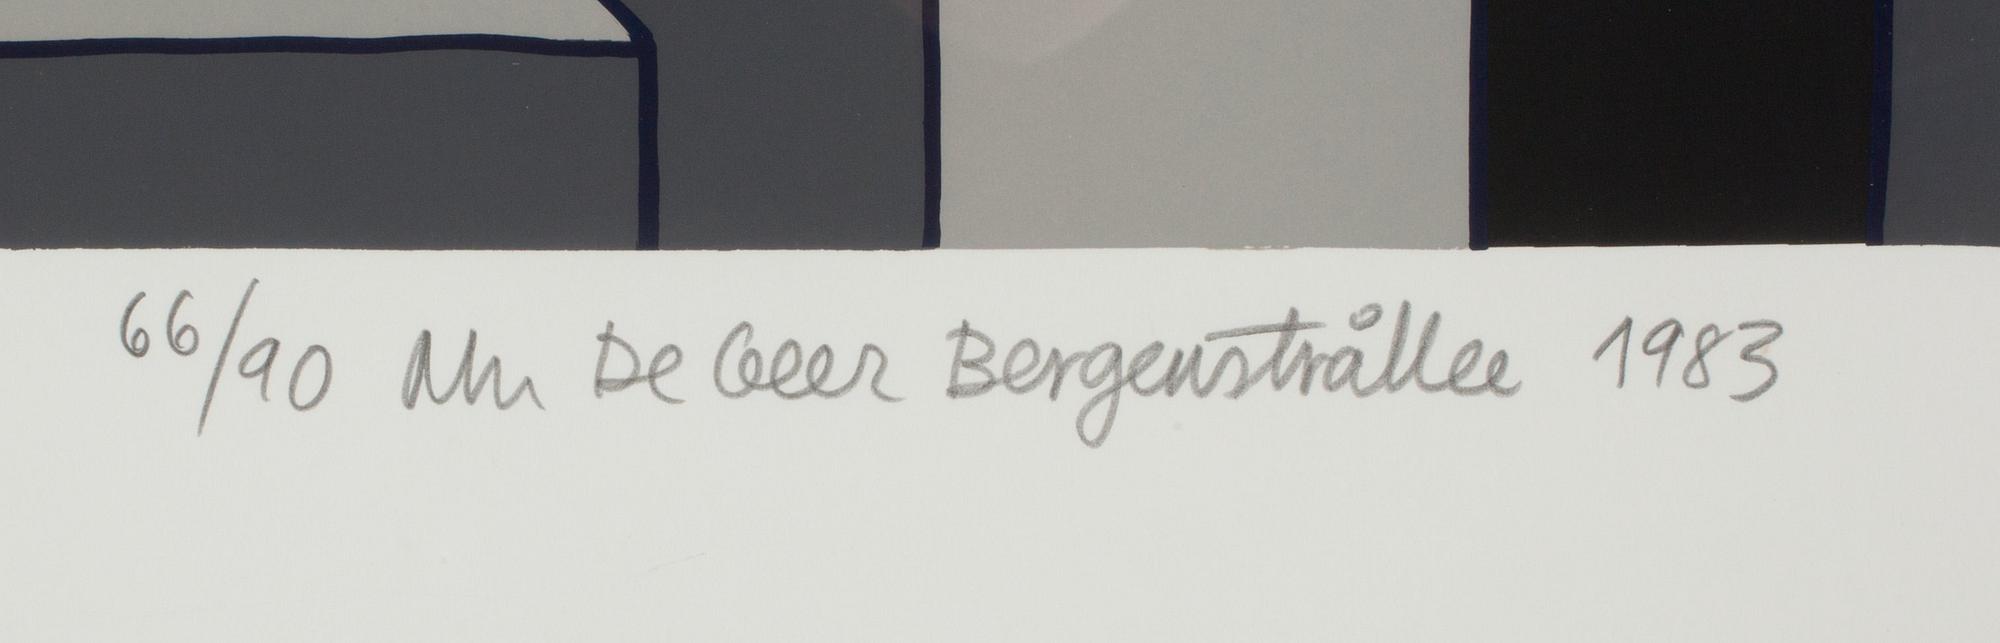 66/90 Mm De Geer Bergenstråhle 1983